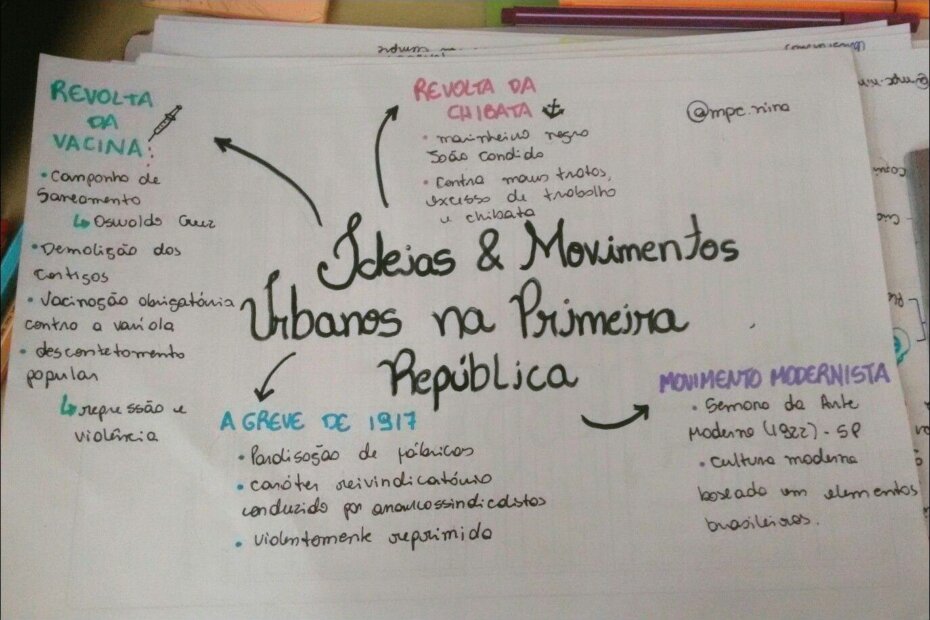 REVOLTA
DA
VACINA
• Campanha de
Saneamento
↳ Oswaldo Cruz
• Demolição dos
Cortiços
• Vacinação obrigatória
contra a varíola
• descontetamento
popular
↳ repressão e
violência
REVOLTA DA
CHIBATA
• marinheiro negro
João Candido
• Contra maus tratos,
excesso de trabalho
e chibata
@mpc.nina
Ideias & Movimentos
Urbanos na Primeira
República
A GREVE DE 1917
• Paralisação de fábricas
• caráter reivindicatório
conduzido por anarcossindicalistas
• violentamente reprimida
MOVIMENTO MODERNISTA
• Semana da Arte
Moderna (1922) - SP
• Cultura moderna
baseado em elementos
brasileiros.